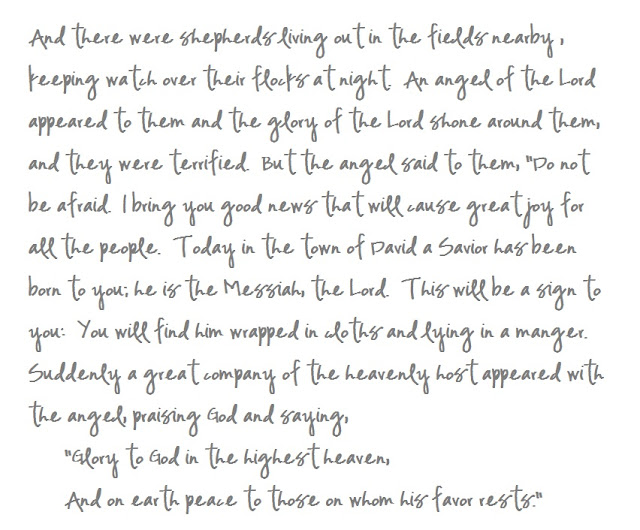 And there were shepherds living out in the fields nearby,
keeping watch over their flocks at night. An angel of the Lord
appeared to them and the glory of the Lord shone around them,
and they were terrified. But the angel said to them, "Do not
be afraid. I bring you good news that will cause great joy for
all the people. Today in the town of David a Savior has been
born to you; he is the Messiah, the Lord. This will be a sign to
you: You will find him wrapped in cloths and lying in a manger.
Suddenly a great company of the heavenly host appeared with
the angel, praising God and saying,
"Glory to God in the highest heaven,
And on earth peace to those on whom his favor rests."